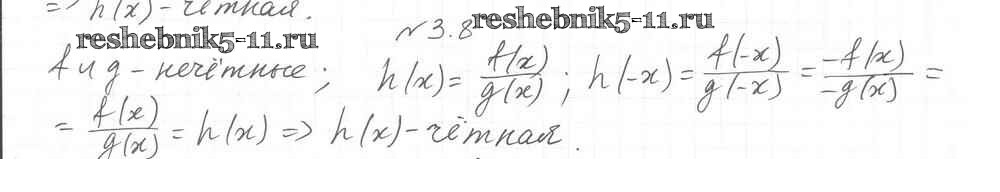 => h(x) - чётная.
№3.8 reshebnik5-11.ru
reshebnik5-11.ru
f и g - нечётные; h(x) = f(x)/g(x); h(-x) = f(-x)/g(-x) = -f(x)/-g(x) =
= f(x)/g(x) = h(x) => h(x) - чётная.